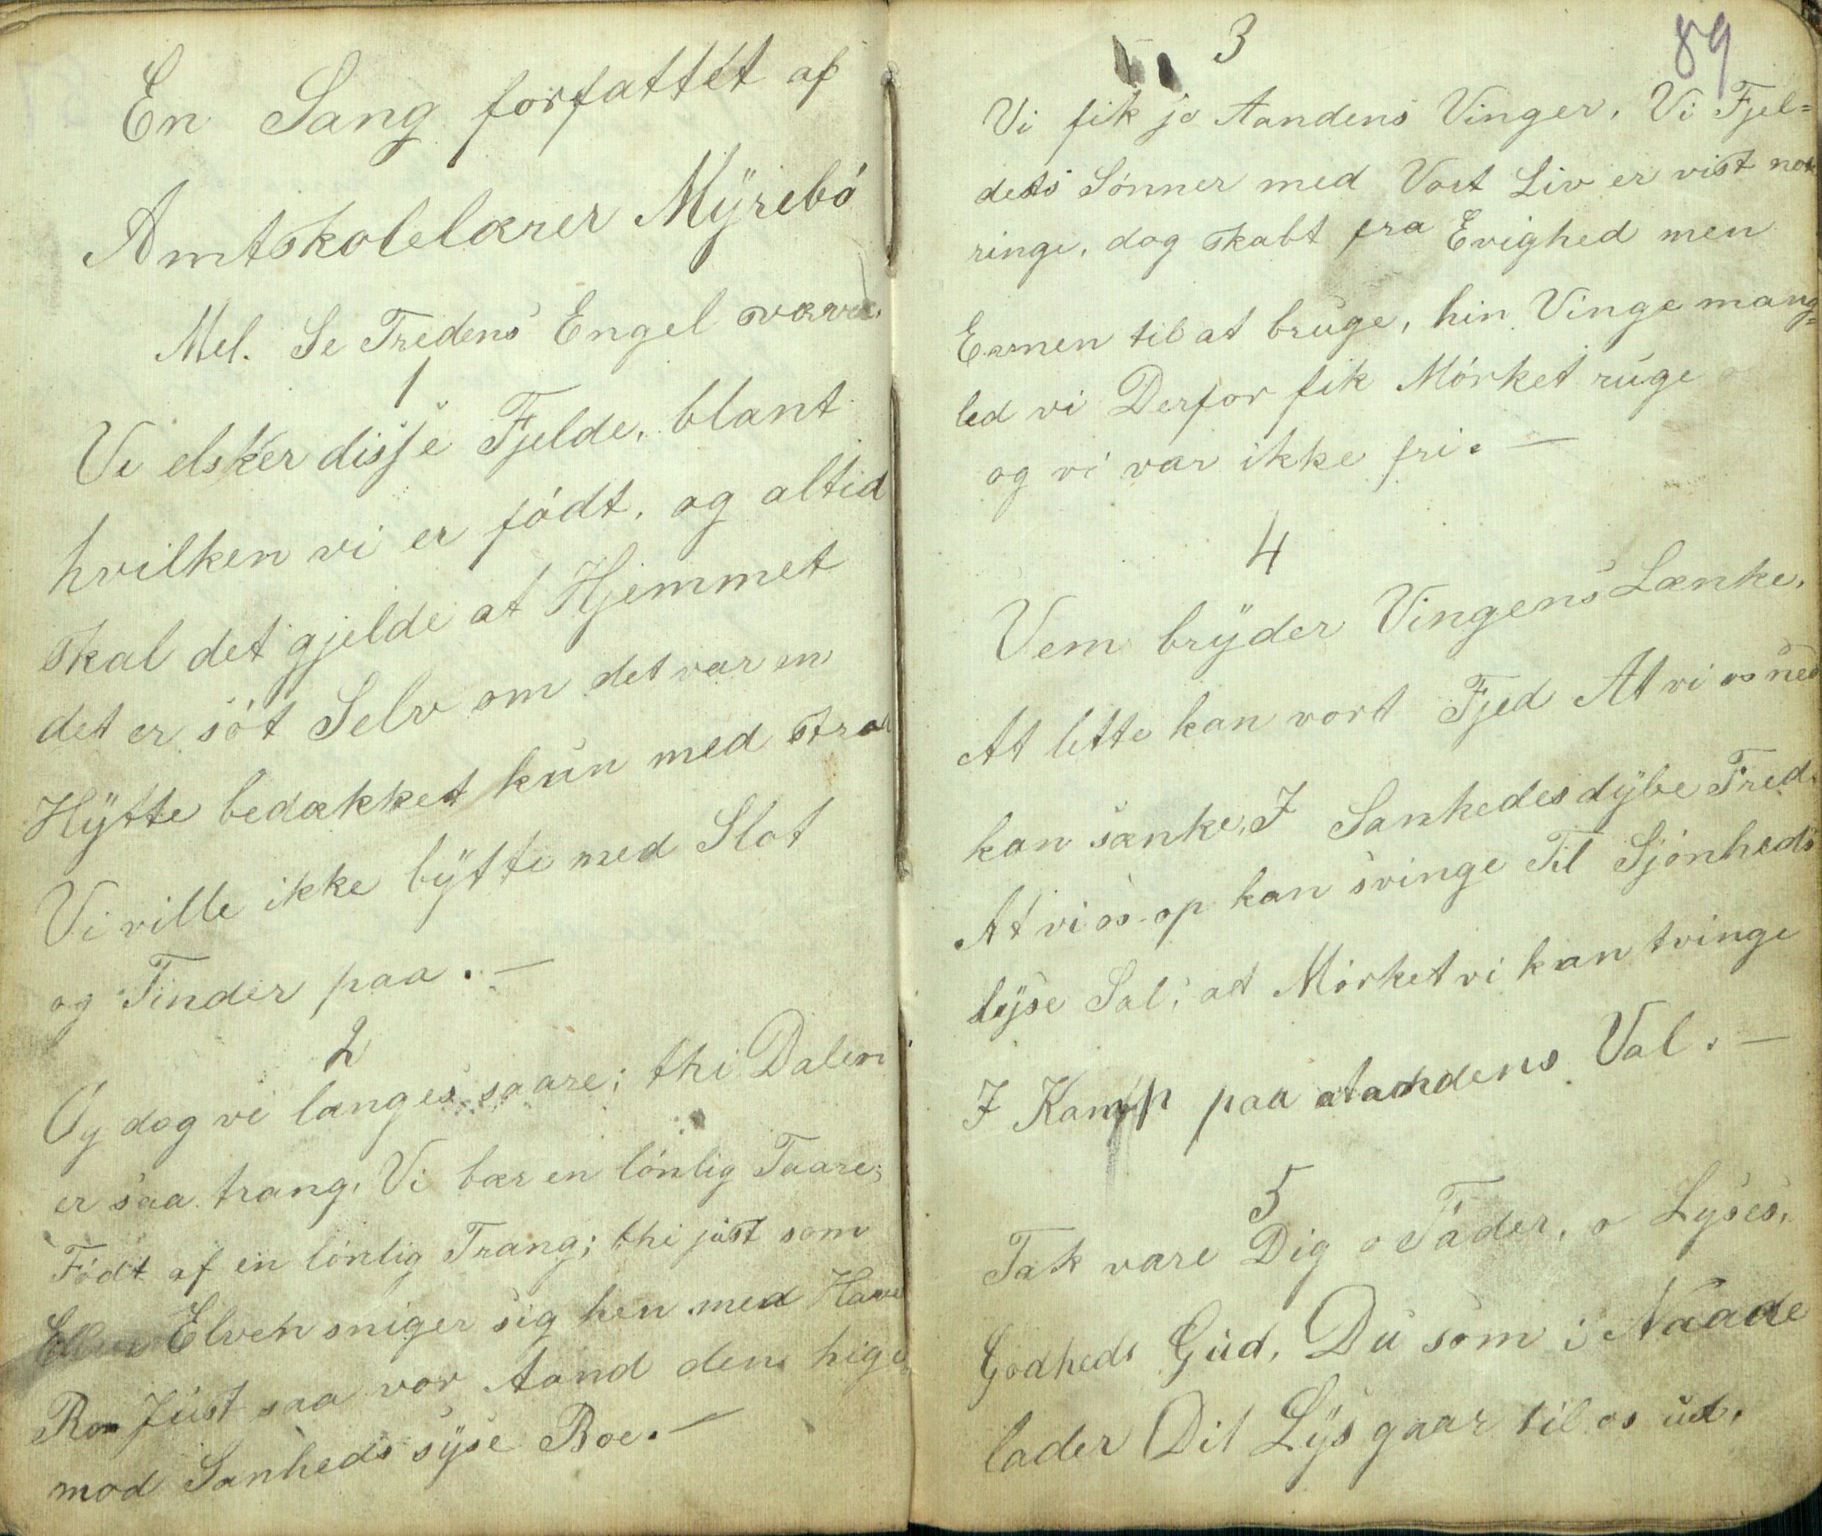 En Sang forfattet af
Amtskolelærer Mÿrebó
Mel. Se Fredens Engel svæve
1
Vi elsker disse Fjelde, blant
hvilken vi er födt, og altid
skal det gjelde at Hjemmet
det er sót Selv om det var en
Hÿtte bedækket kun med straa
Vi ville ikke bÿtte med Slot
og Tinder paa. —
2
Og dog vi længes saare; thi Dalen
er saa trang, Vi bær en lónlig Taare;
Födt af en lónlig Trang; thi just som
Elven sniger sig hen med Have
Ro Just saa vor Aand den hige
mod Sanheds sÿse Boe. —
89
3
Vi fik jo Aandens Vinger, Vi Fjel=
dets Sónner med Vort Liv er vist nok
ringe, dog skabt fra Evighed men
Evnen til at bruge, hin Vinge mang=
led vi Derfor fik Mórket ruge
og vi var ikke fri. —
4
Vem brÿder Vingens Lænke,
At lette kan vort Fjed At vi os ned
kan sænke, I Sanhedes dÿbe Fred.
At vi os op kan svinge Til Sjónheds
lÿse Sal; at Mórket vi kan tvinge
I Kamp paa Aandens Val. —
5
Tak være Dig o Fader, o Lyses,
Godheds Gud, Du som i Naade
lader Dit Lÿs gaar til os ud,